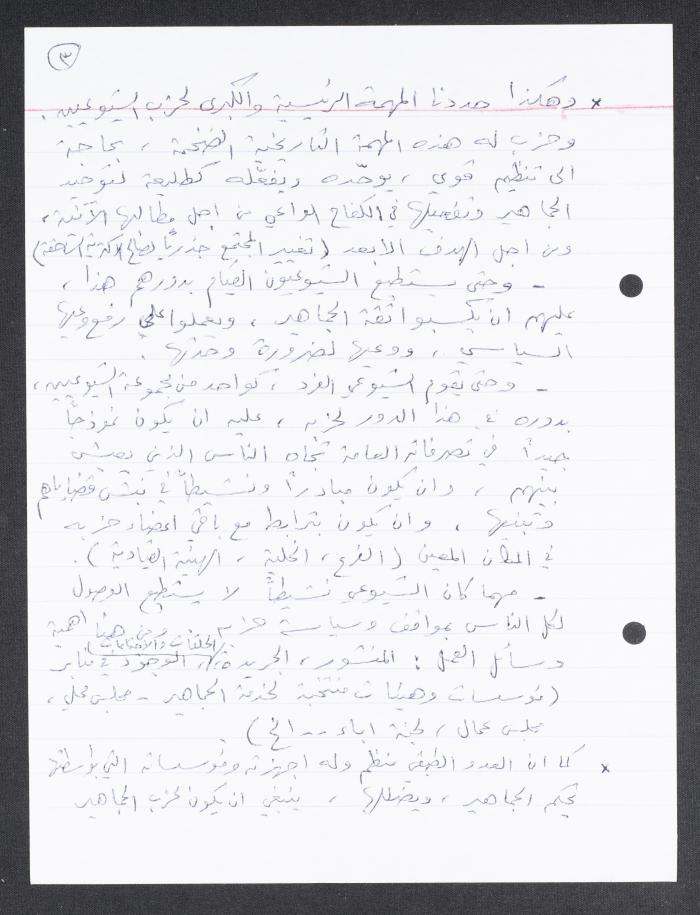 ٣
× وهكذا حددنا المهمة الرئيسية والكبرى لحزب الشيوعيين.
وحزب له هذه المهمة التاريخية الضخمة، بحاجة
الى تنظيم قوي، يوحّده ويفعّله كطليعة لتوحيد
الجماهير وتفعيلها في الكفاح الواعي من اجل مطالبها الآنية،
ومن اجل الهدف الأبعد (تغيير المجتمع جذرياً لصالح الاكثرية الساحقة)
- وحتى يستطيع الشيوعيون القيام بدورهم هذا،
عليهم ان يكسبوا ثقة الجماهير، ويعملوا على رفع وعيها
السياسي، ووعيها لضرورة وحدتها.
- وحتى يقوم الشيوعي الفرد، كواحد من مجموعة الشيوعيين،
بدوره في هذا الدور لحزبه، عليه ان يكون نموذجاً
جيداً في تصرفاته العامة تجاه الناس الذين يعيش
بينهم، وان يكون مبادراً ونشيطاً في نبش قضاياهم
وتبنيها، وان يكون بترابط مع باقي اعضاء حزبه
في المكان المعين (الفرع، الخلية، الهيئة القيادية).
- مهما كان الشيوعي نشيطاً لا يستطيع الوصول
لكل الناس بمواقف وسياسة حزبه. ومن هنا اهمية
وسائل العمل: المنشور، الجريدة، (الحلقات والاجتماعات)، الوجود في منابر
(مؤسسات وهيئات منتخبة لخدمة الجماهير - مجلس محلي،
مجلس عمال، لجنة اباء ... الخ)
× كما ان العدو الطبقي منظم وله اجهزته ومؤسساته التي بواسطتها
يحكم الجماهير، ويضللها، ينبغي ان يكون لحزب الجماهير